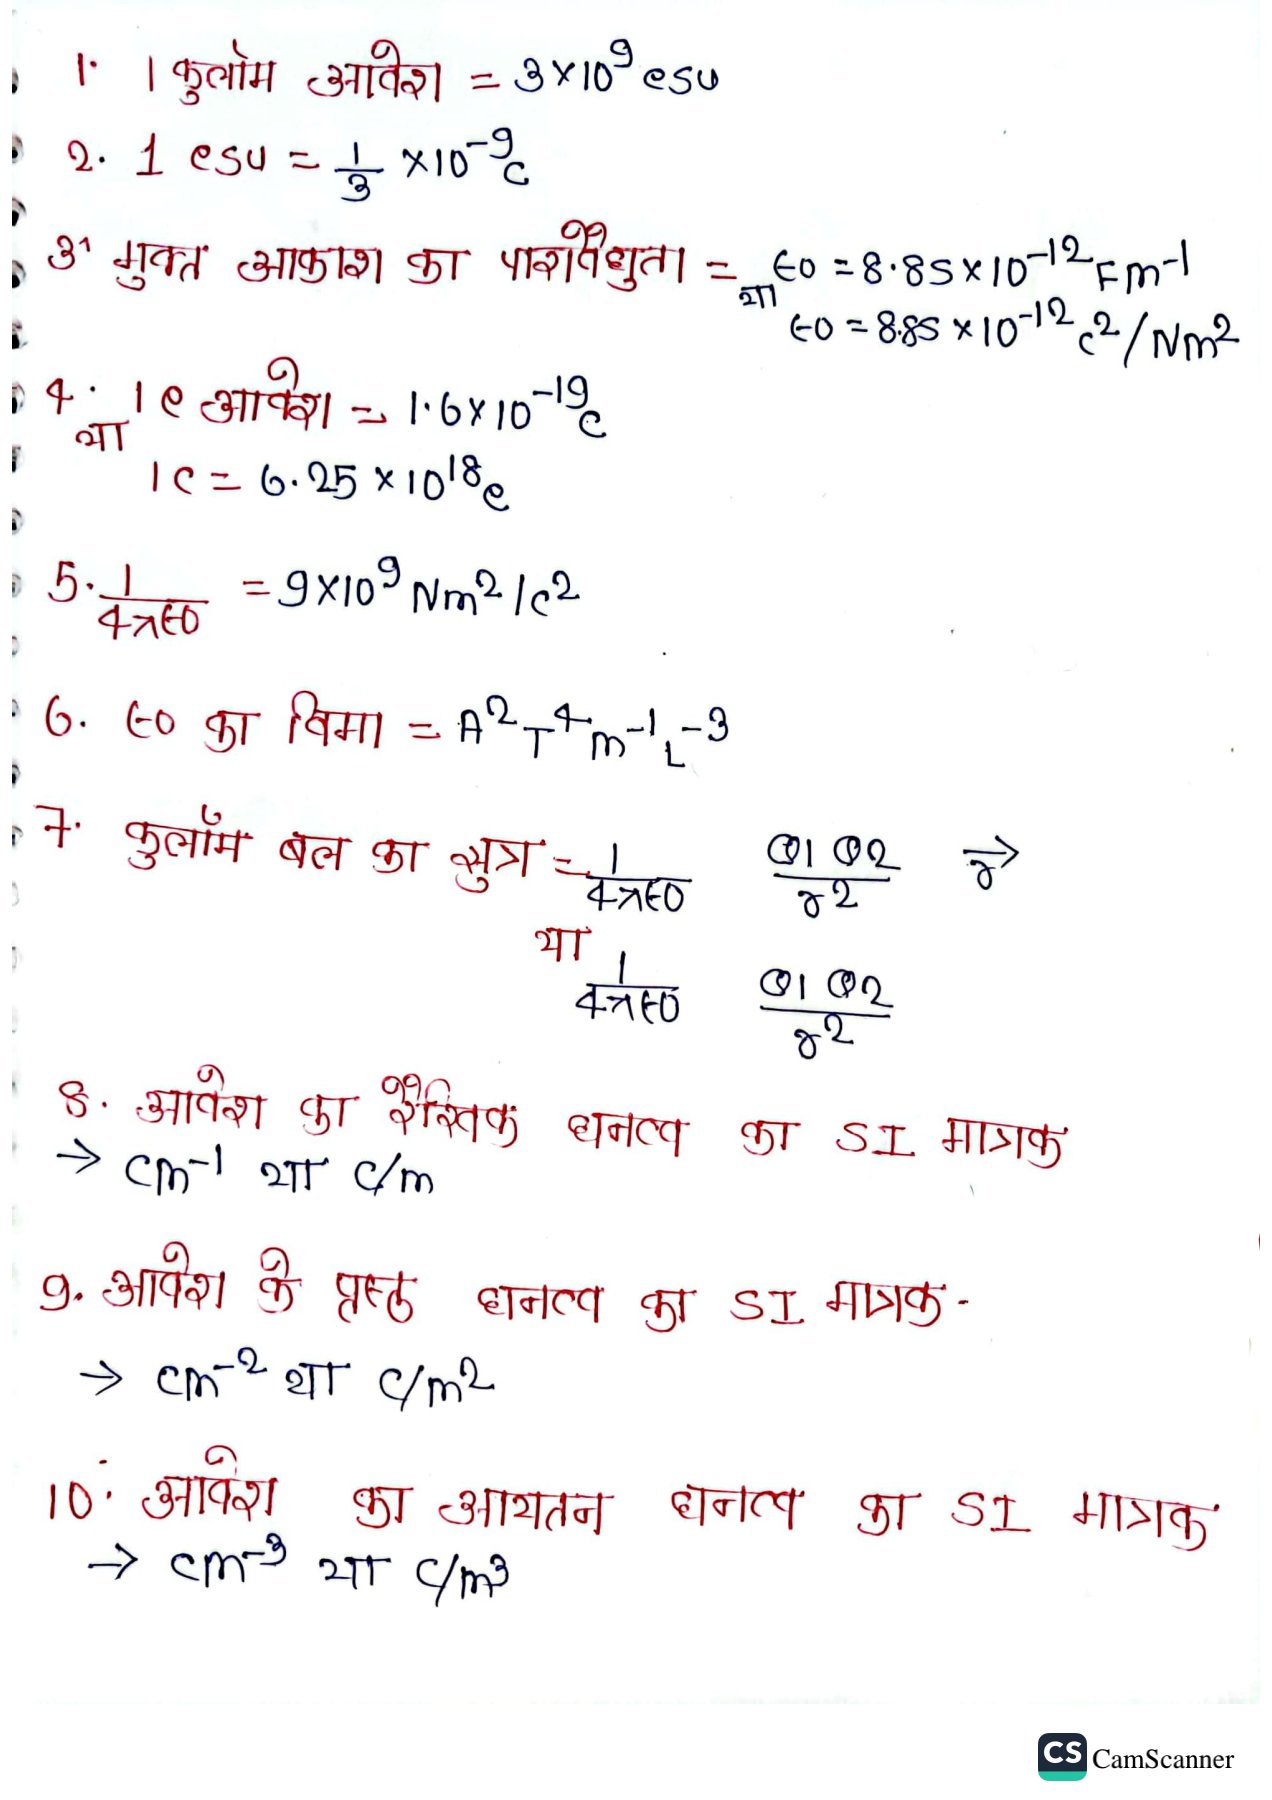 1. 1 कुलॉम आवेश = 3×10⁹ esu
2. 1 esu = 1/3 ×10⁻⁹C
3. मुक्त आकाश का पारावैधुता = ϵ0 = 8.85×10⁻¹² Fm⁻¹
या ϵ0 = 8.85×10⁻¹² C²/Nm²
4. 1e आवेश = 1.6×10⁻¹⁹C
या
1C = 6.25×10¹⁸e
5. 1/4πϵ0 = 9×10⁹ Nm²/C²
6. ϵ0 का विमा = A²T⁴m⁻¹L⁻³
7. कुलॉम बल का सुत्र = 1/4πϵ0 Q1 Q2/r² r→
या 1/4πϵ0 Q1 Q2/r²
8. आवेश का रैखिक घनत्व का SI मात्रक
→ Cm⁻¹ या C/m
9. आवेश के पृस्ठ घनत्व का SI मात्रक-
→ Cm⁻² या C/m²
10. आवेश का आयतन घनत्व का SI मात्रक
→ Cm⁻³ या C/m³
CS CamScanner